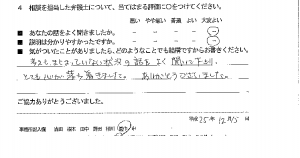 4 相談を担当した弁護士について、当てはまる評価に○をつけてください。
悪い やや悪い 普通 よい 大変よい
■ あなたの話をよく聞きましたか。
■ 説明は分かりやすかったですか。
■ 気がついたことがありましたら、どのようなことでも結構ですからお書きください。
考えもまとまっていない状況の話をよく聞いて下さり、
とても心が落ち着きました。ありがとうございました。
ご協力ありがとうございました。
平成25年12月15日
事務所記入欄